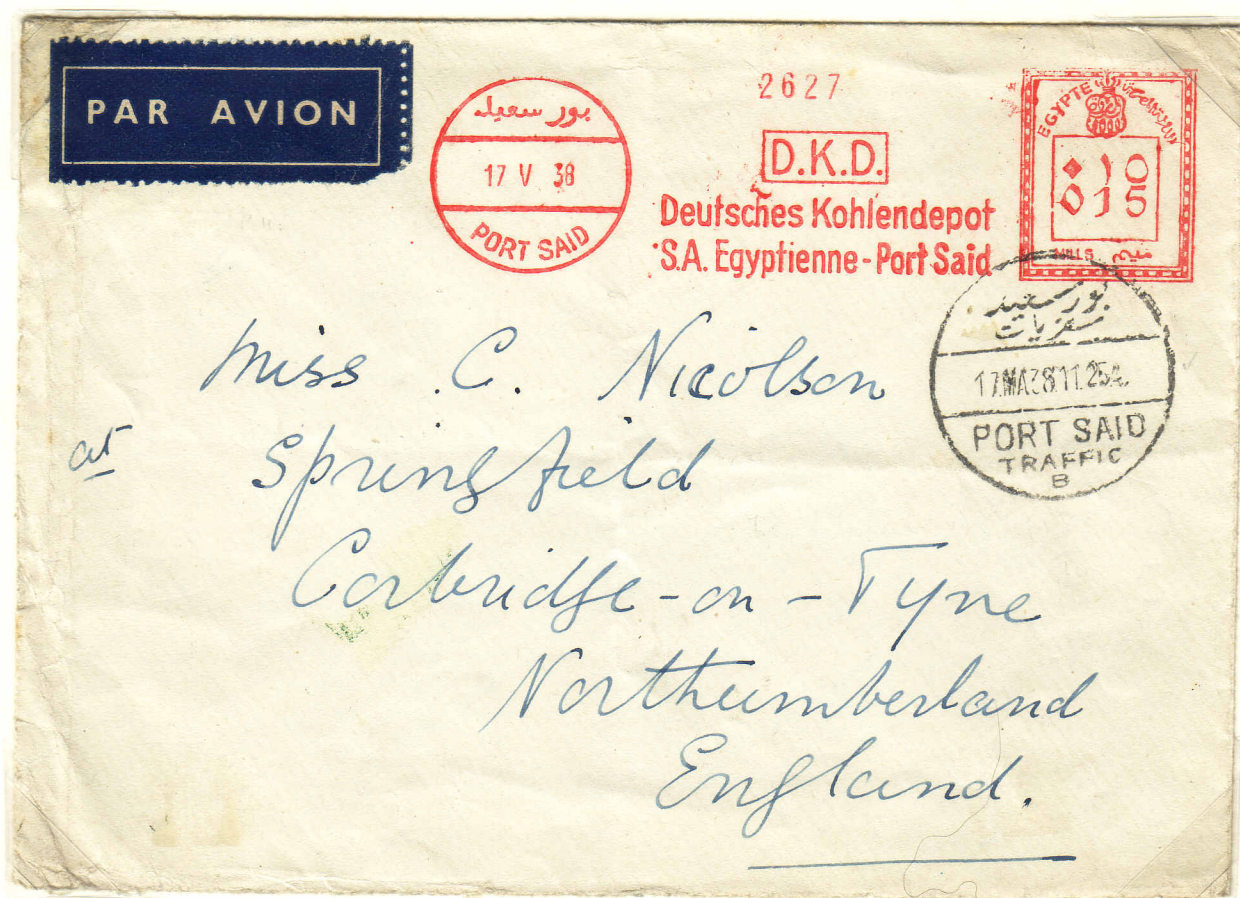 PAR AVION
بور سعيد
17 V 38
PORT SAID
2627
D.K.D.
Deutsches Kohlendepot
S.A. Egyptienne - Port Said
EGYPTE
٠١٥
015
MILLS
بور سعيد
17.MA38.11.25
PORT SAID
TRAFFIC
B
Miss C. Nicolson
at Springfield
Corbridge-on-Tyne
Northumberland
England.